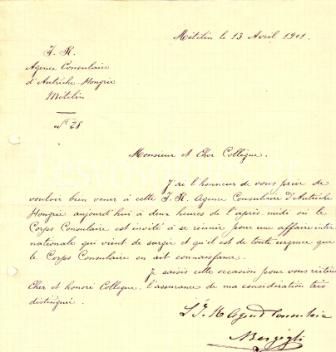 Mételin le 13 Avril 1901.
I. R.
Agence Consulaire
d'Autriche-Hongrie
Mételin
N° 28
Monsieur et Cher Collègue.
J'ai l'honneur de vous prier de
vouloir bien venir à cette I. R. Agence Consulaire d'Autriche
Hongrie aujourd'hui à deux heures de l'après midi où le
Corps Consulaire est invité à se réunir pour une affaire inter
nationale qui vient de surgir et qu'il est de toute urgence que
le Corps Consulaire en ait connaissance.
Je saisis cette occasion pour vous réitérer
Cher et honoré Collègue, l'assurance de ma considération très
distinguée.
L'I. R. Agent Consulaire